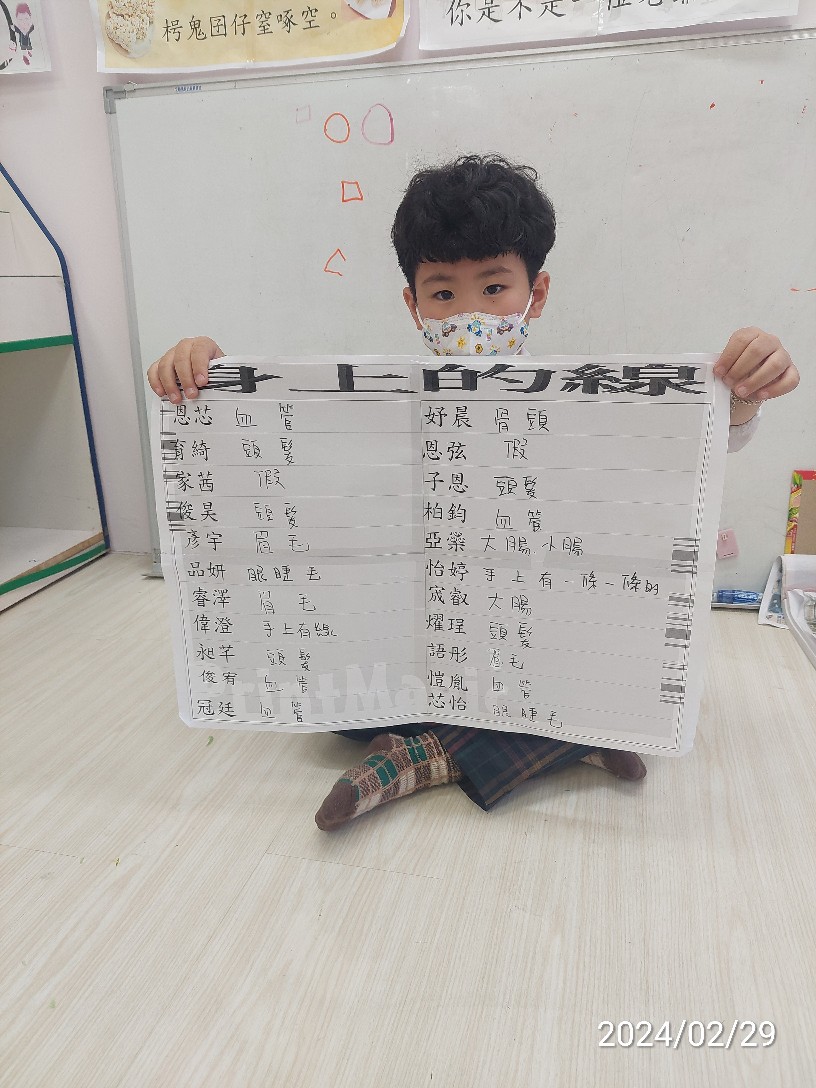 粩鬼囝仔窒啄空。
你是不是一位
身上的線
恩芯 血管
育綺 頭髮
家茜 假
俊昊 頭髮
彥宇 眉毛
品妍 眼睫毛
睿澤 眉毛
偉澄 手上有線
昶芊 頭髮
俊宥 血管
冠廷 血管
妤晨 骨頭
恩弦 假
子恩 頭髮
柏鈞 血管
亞藥 大腸、小腸
怡婷 手上有一條一條的
宬叡 大腸
燿珵 頭髮
語彤 眉毛
愷胤 血管
芯怡 眼睫毛
PrintMagic
2024/02/29